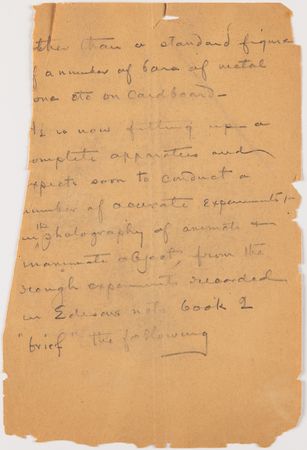 ther than a standard figure
f a number of bars of metal
one etc on Cardboard—
is now fitting up a
omplete apparatus and
xpects soon to conduct a
number of accurate Experiments in
the photography of animate &
inanimate objects from the
rough experiments recorded
in Edisons note book I
"brief" the following